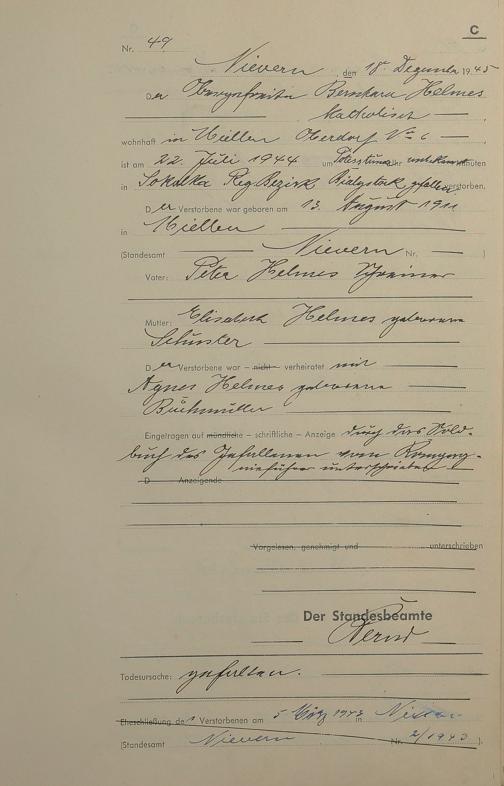 C
Nr. 49
Nievern, den 18. Dezember 1945
Der Obergefreite Bernhard Helmes
katholisch
wohnhaft in Miellen Oberdorf No 6
ist am 22. Juli 1944 um Todesstunde Uhr unbekannt Minuten
in Sokolka Reg Bezirk Bialystok gefallen verstorben.
Der Verstorbene war geboren am 13. August 1911
in Miellen
(Standesamt Nievern Nr. )
Vater: Peter Helmes Schreiner
Mutter: Elisabeth Helmes geborene
Der Verstorbene war – nicht – verheiratet mit
Agnes Helmes geborene
Buchmüller
Eingetragen auf mündliche – schriftliche – Anzeige durch das Sold-
buch des Gefallenen vom Kompag-
nieführer unterschrieben
D Anzeigende
Vorgelesen, genehmigt und unterschrieben
Der Standesbeamte
Todesursache: gefallen.
Eheschließung des Verstorbenen am 5 März 1943 in Nievern
(Standesamt Nievern Nr. 2/1943 ).